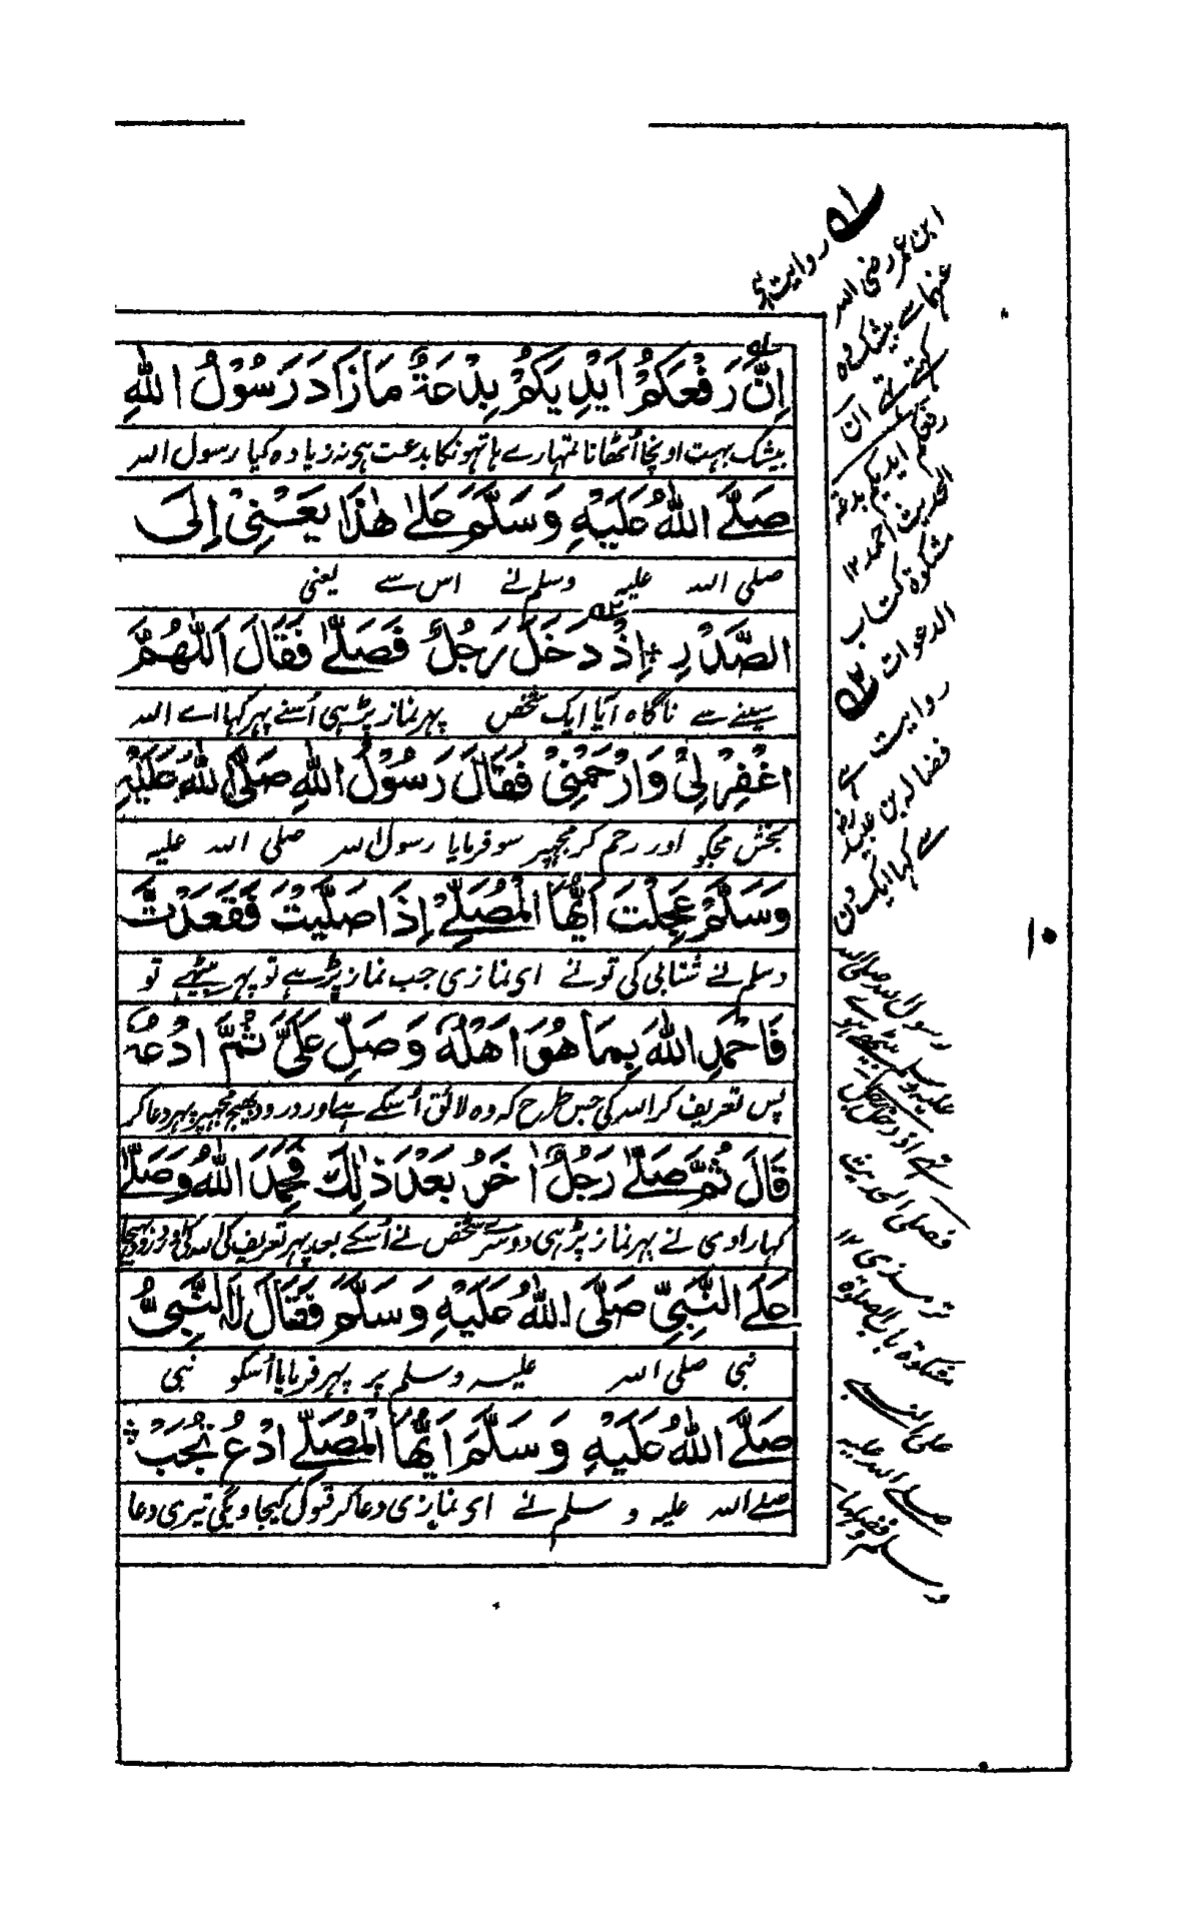 اِنَّ رَفْعَكُمْ اَيْدِيَكُمْ بِدْعَةٌ مَا زَادَ رَسُوْلُ اللهِ
بیشک بہت اونچا اُٹھانا تمہارے ہاتہونکا بدعت ہی نہ زیادہ کیا رسول اللہ
صَلَّے اللهُ عَلَيْهِ وَسَلَّمَ عَلٰی هٰذَا يَعْنِيْ اِلَى
صلی اللہ علیہ وسلم نے اس سے یعنی
الصَّدْرِ اِذْ دَخَلَ رَجُلٌ فَصَلّٰے فَقَالَ اَللّٰهُمَّ
سینے سے ناگاہ آیا ایک شخص پہر نماز پڑہی اُسنے پہر کہا اے اللہ
اغْفِرْ لِيْ وَارْحَمْنِيْ فَقَالَ رَسُوْلُ اللهِ صَلَّى اللهُ عَلَيْهِ
بخش مجکو اور رحم کر مجہپر سو فرمایا رسول اللہ صلی اللہ علیہ
وَسَلَّمَ عَجِلْتَ اَيُّهَا الْمُصَلِّے اِذَا صَلَّيْتَ فَقَعَدْتَّ
وسلم نے شتابی کی تونے ای نمازی جب نماز پڑہے تو پہر بیٹہے تو
فَاحْمَدِ اللهَ بِمَا هُوَ اَهْلُهٗ وَصَلِّ عَلَيَّ ثُمَّ ادْعُهُ
پس تعریف کر اللہ کی جس طرح کہ وہ لائق اُسکے ہے اور درود بہیج مجہپر پہر دعا کر
قَالَ ثُمَّ صَلّٰے رَجُلٌ اٰخَرُ بَعْدَ ذٰلِكَ فَحَمِدَ اللهَ وَصَلّٰے
کہا راوی نے پہر نماز پڑہی دوسرے شخص نے اُسکے بعد پہر تعریف کی اللہ کی اور درود بہیجا
عَلَے النَّبِيِّ صَلَّى اللهُ عَلَيْهِ وَسَلَّمَ فَقَالَ لَهُ النَّبِيُّ
نبی صلی اللہ علیہ وسلم پر پہر فرمایا اُسکو نبی
صَلَّے اللهُ عَلَيْهِ وَسَلَّمَ اَيُّهَا الْمُصَلِّے ادْعُ تُجَبْ
صلے اللہ علیہ و سلم نے ای نمازی دعا کر قبول کیجاویگی تیری دعا
لہ روایت ہی
ابن عمر رضی اللہ
عنہما سے بیشک وہ
کہتے تہے ان
رفعکم ایدیکم بدعۃ
الحدیث احمد ۱۲
مشکوۃ کتاب
الدعوات
روایت ہے
فضالہ بن عبید رضی
سے کہا ایک دن
رسول اللہ صلی اللہ
علیہ وسلم بیٹہے ہوے
تہے اذ دخل رجل
فصلی الحدیث
ترمذی ۱۲
مشکوۃ باب الصلوۃ
علی النبی
صلے اللہ علیہ
وسلم وفضلہا
۱۰